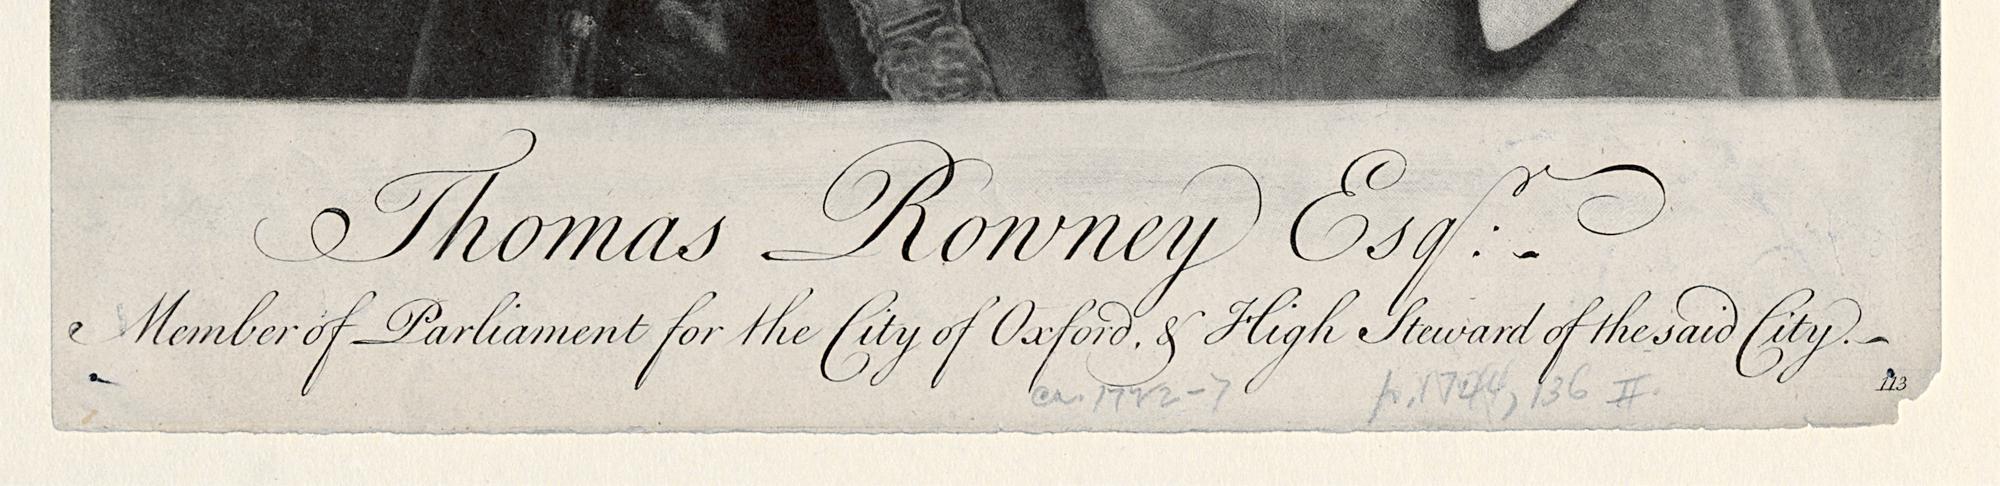 Thomas Rowney Esqr:
Member of Parliament for the City of Oxford, & High Steward of the said City.
ca. 1722-7 p. 1744, 136 II.
113